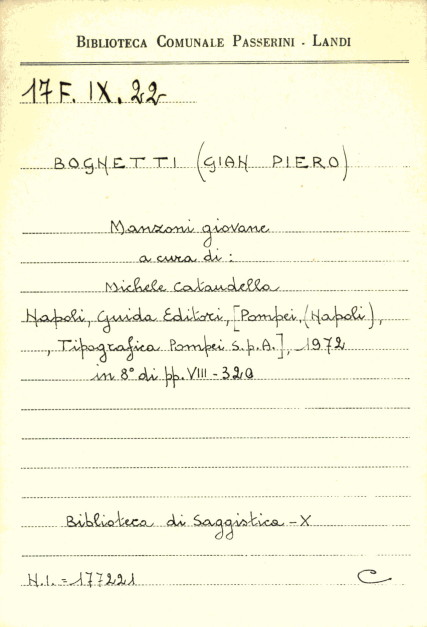 BIBLIOTECA COMUNALE PASSERINI - LANDI
17 F. IX. 22
BOGNETTI (GIAN PIERO)
Manzoni giovane
a cura di:
Michele Cataudella
Napoli, Guida Editori, [Pompei, (Napoli),
, Tipografica Pompei S.p.A.], 1972
in 8° di pp. VIII - 320
Biblioteca di Saggistica - X
N.I. = 177221
C